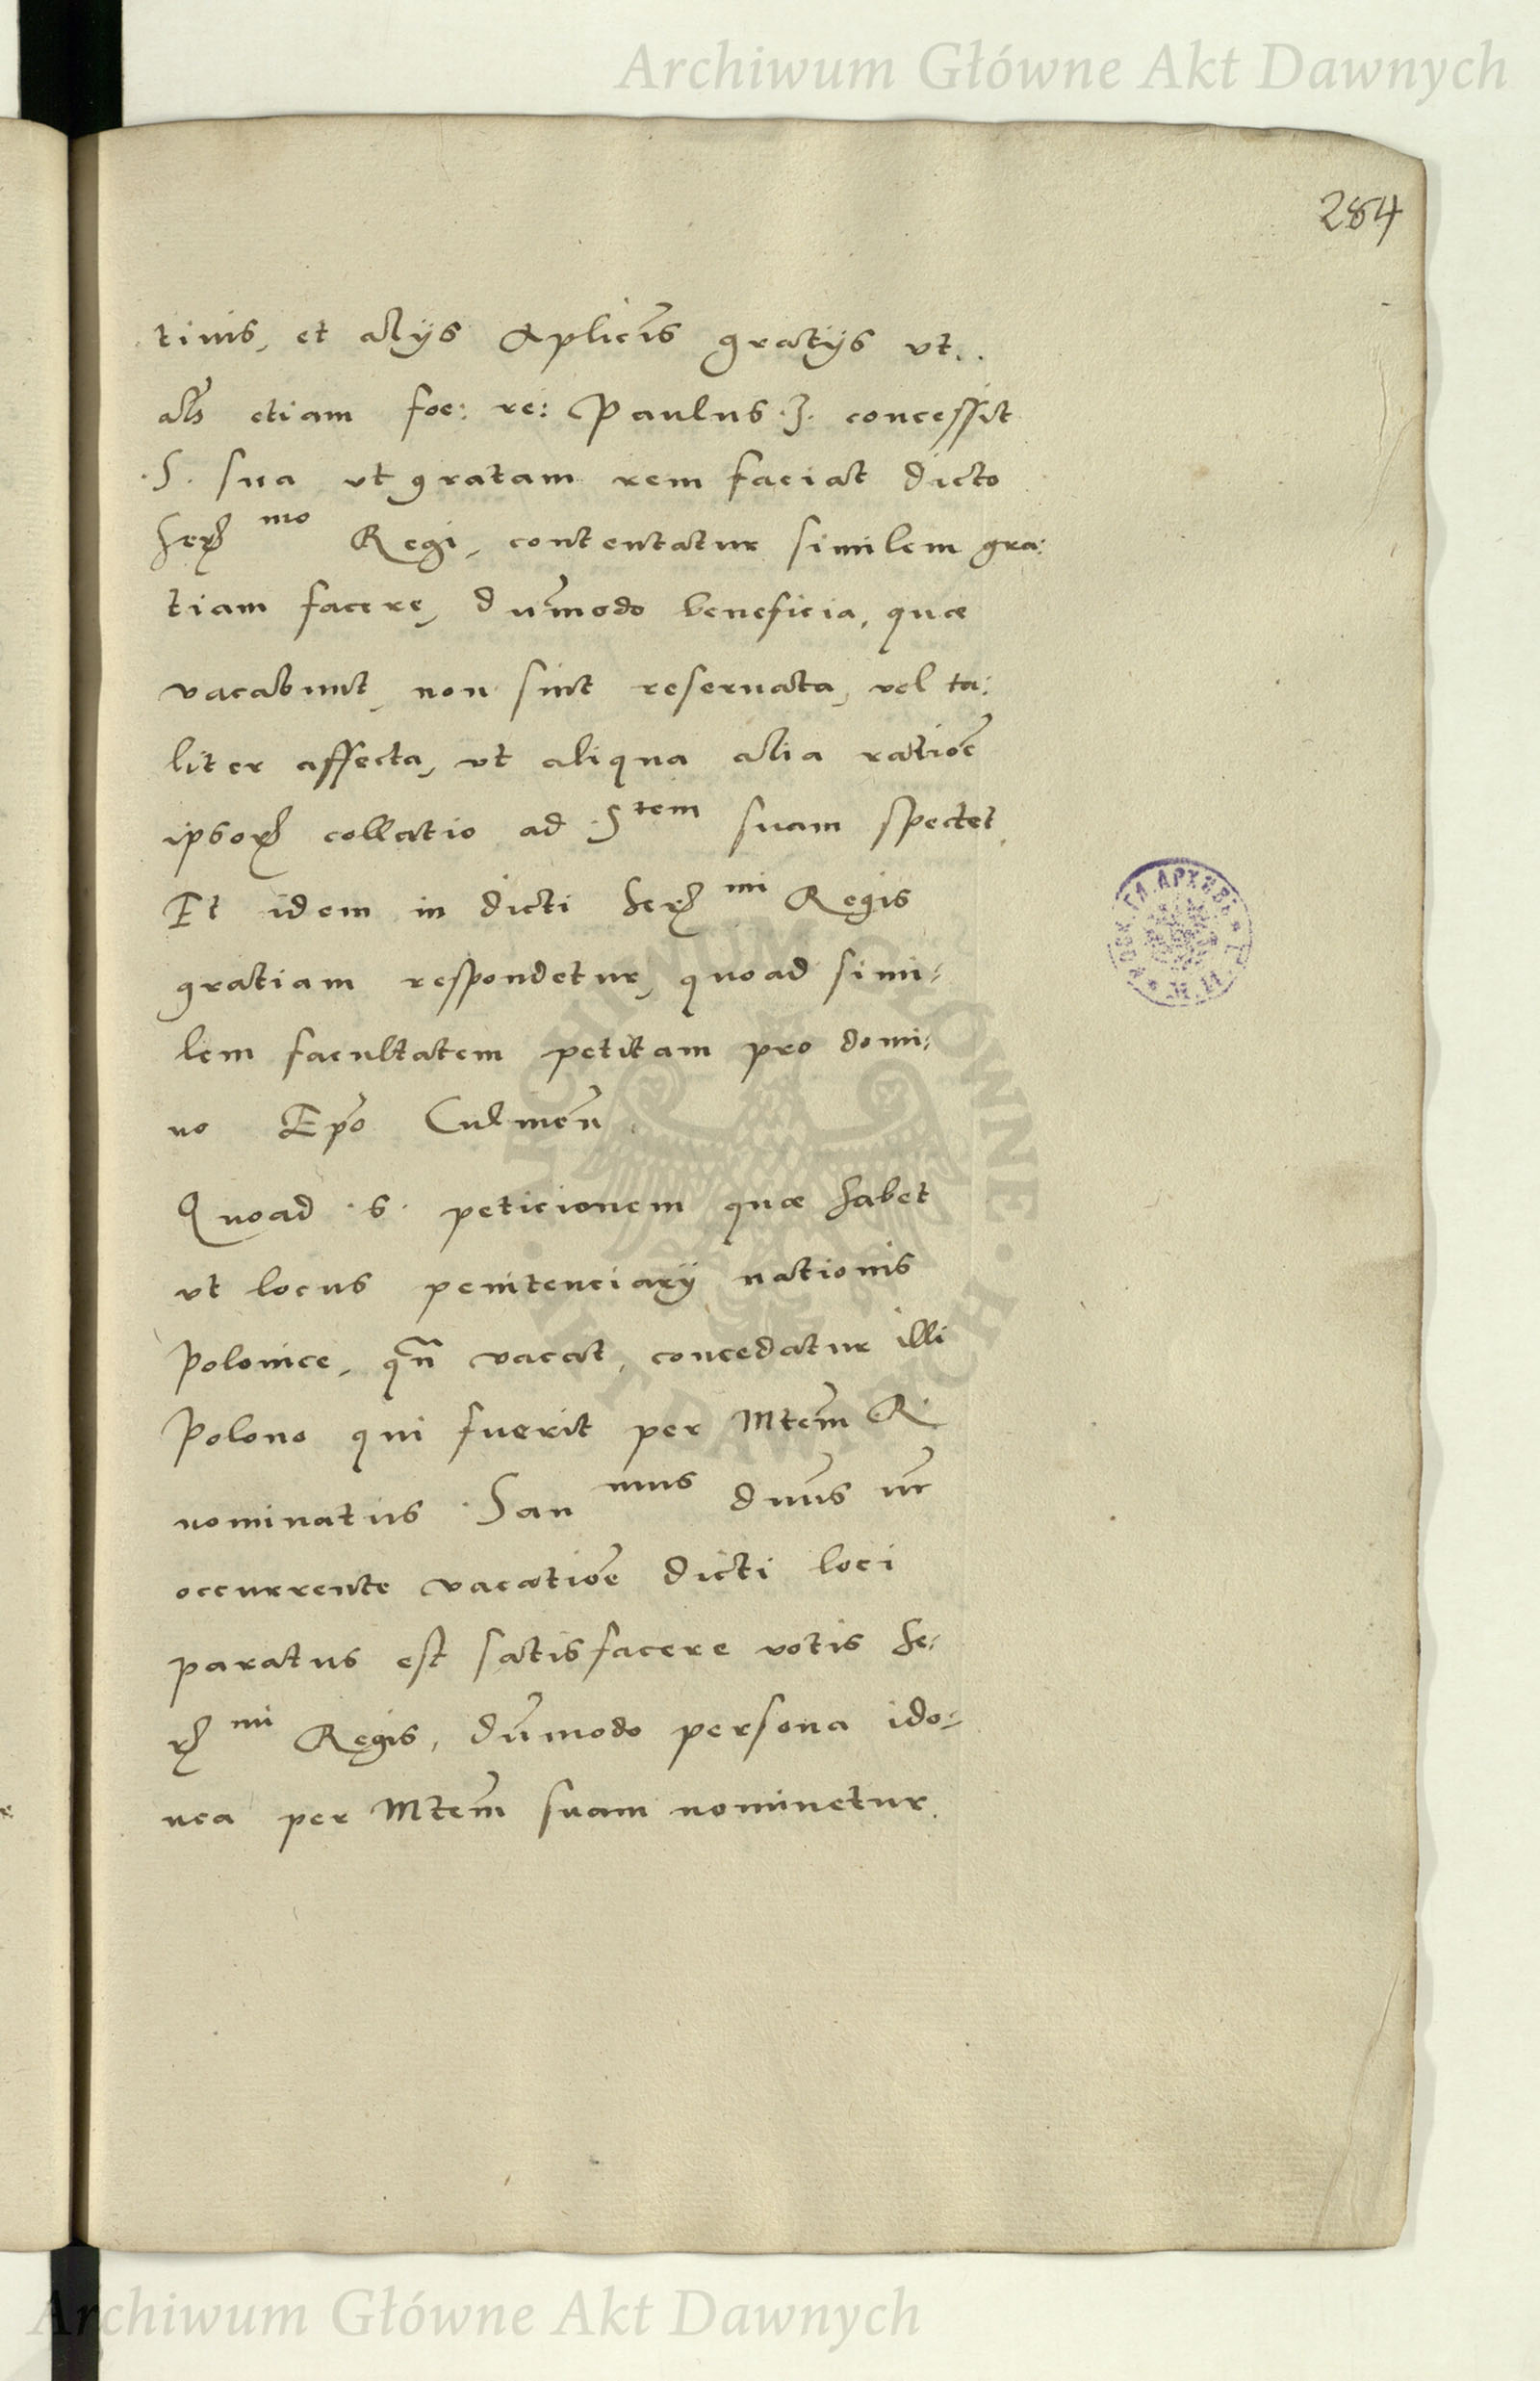 Archiwum Główne Akt Dawnych
284
tinis, et alijs Aplicis gratijs vt..
als etiam foe: re: Paulus .3. concessit
.S. sua vt gratam rem faciat dicto
Ser. mo Regi, contentatur similem gra:
tiam facere, dummodo beneficia, quae
vacabunt, non sint reseruata, vel ta:
liter affecta, vt aliqua alia ratioe
ipsor. collatio ad .S tem suam spectet.
Et idem in dicti Ser. mi Regis
gratiam respondetur, quoad simi=
lem facultatem petitam pro domi:
no Epo Culmen.
Quoad .6. peticionem quae habet
vt locus penitenciarij nationis
Polonice, qn vacat, concedatur illi
Polono qui fuerit per Mtem R.
nominatus .San mus dnus nr
occurrente vacatioe dicti loci
paratus est satisfacere votis Se:
r. mi Regis, dummodo persona ido=
nea per Mtem suam nominetur.
ARCHIWUM GŁÓWNE · AKT DAWNYCH ·
Archiwum Główne Akt Dawnych